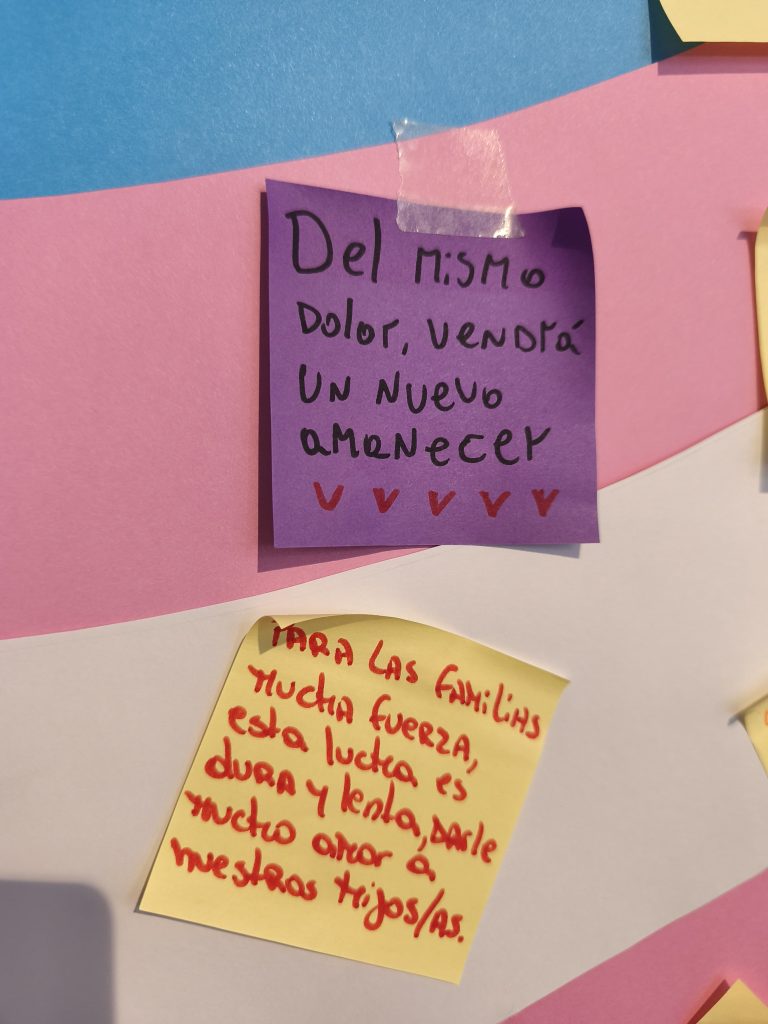 Del mismo
Dolor, vendrá
un nuevo
amanecer
PARA LAS FAMILIAS
MUCHA FUERZA,
esta lucha es
dura y lenta, darle
mucho amor a
nuestros Hijos/as.